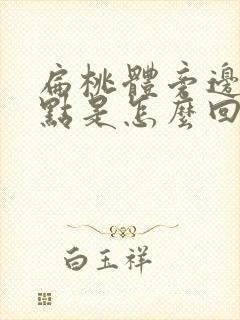 扁桃體旁邊
點是怎麼回
白玉祥